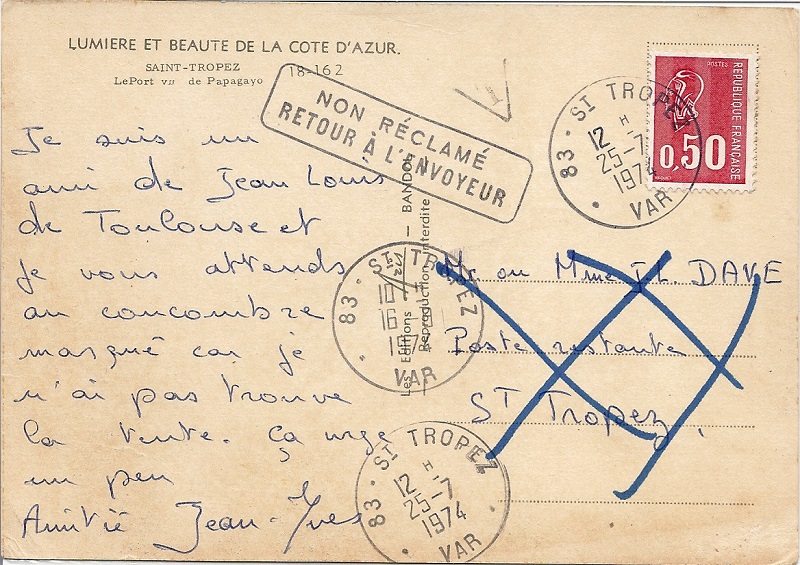 LUMIERE ET BEAUTE DE LA COTE D'AZUR.
SAINT-TROPEZ
LePort vu de Papagayo
18-162
NON RÉCLAMÉ
RETOUR À L'ENVOYEUR
Je suis un
ami de Jean Louis
de Toulouse et
je vous attends
au concombre
masqué car je
n'ai pas trouve
la tente. Ça urge
un peu
Amitié Jean-Yves
Les Editions — BANDOL
Reproduction interdite
POSTES
REPUBLIQUE FRANÇAISE
0,50
83 - ST TROPEZ
12 H
25-7
1974
VAR
83 - ST TROPEZ
16
197
VAR
Mr ou Mme JL. DAVE
Poste restante
ST Tropez.
83 - ST TROPEZ
12 H
25-7
1974
VAR